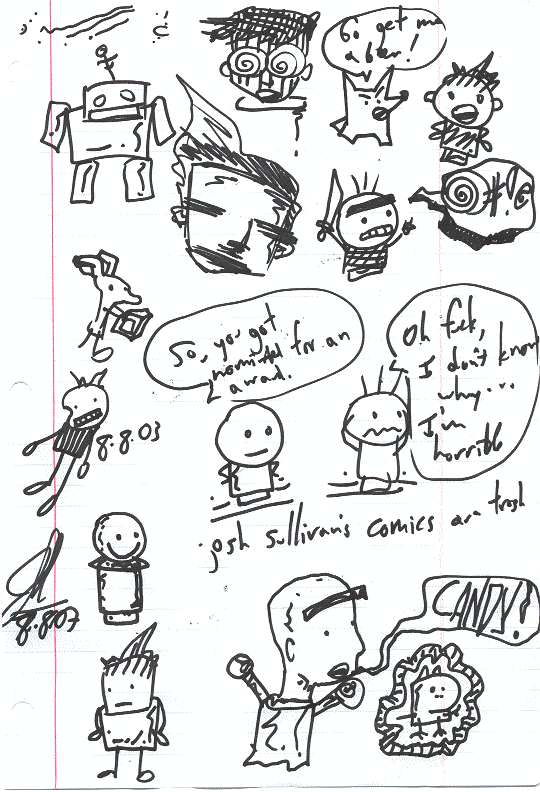 Go get me
a beer!
#!@
So, you got
nominated for an
award.
Oh fuck,
I don't know
why...
I'm
horrible
8.8.03
josh Sullivan's comics are trash
8.8.07
CANDY!